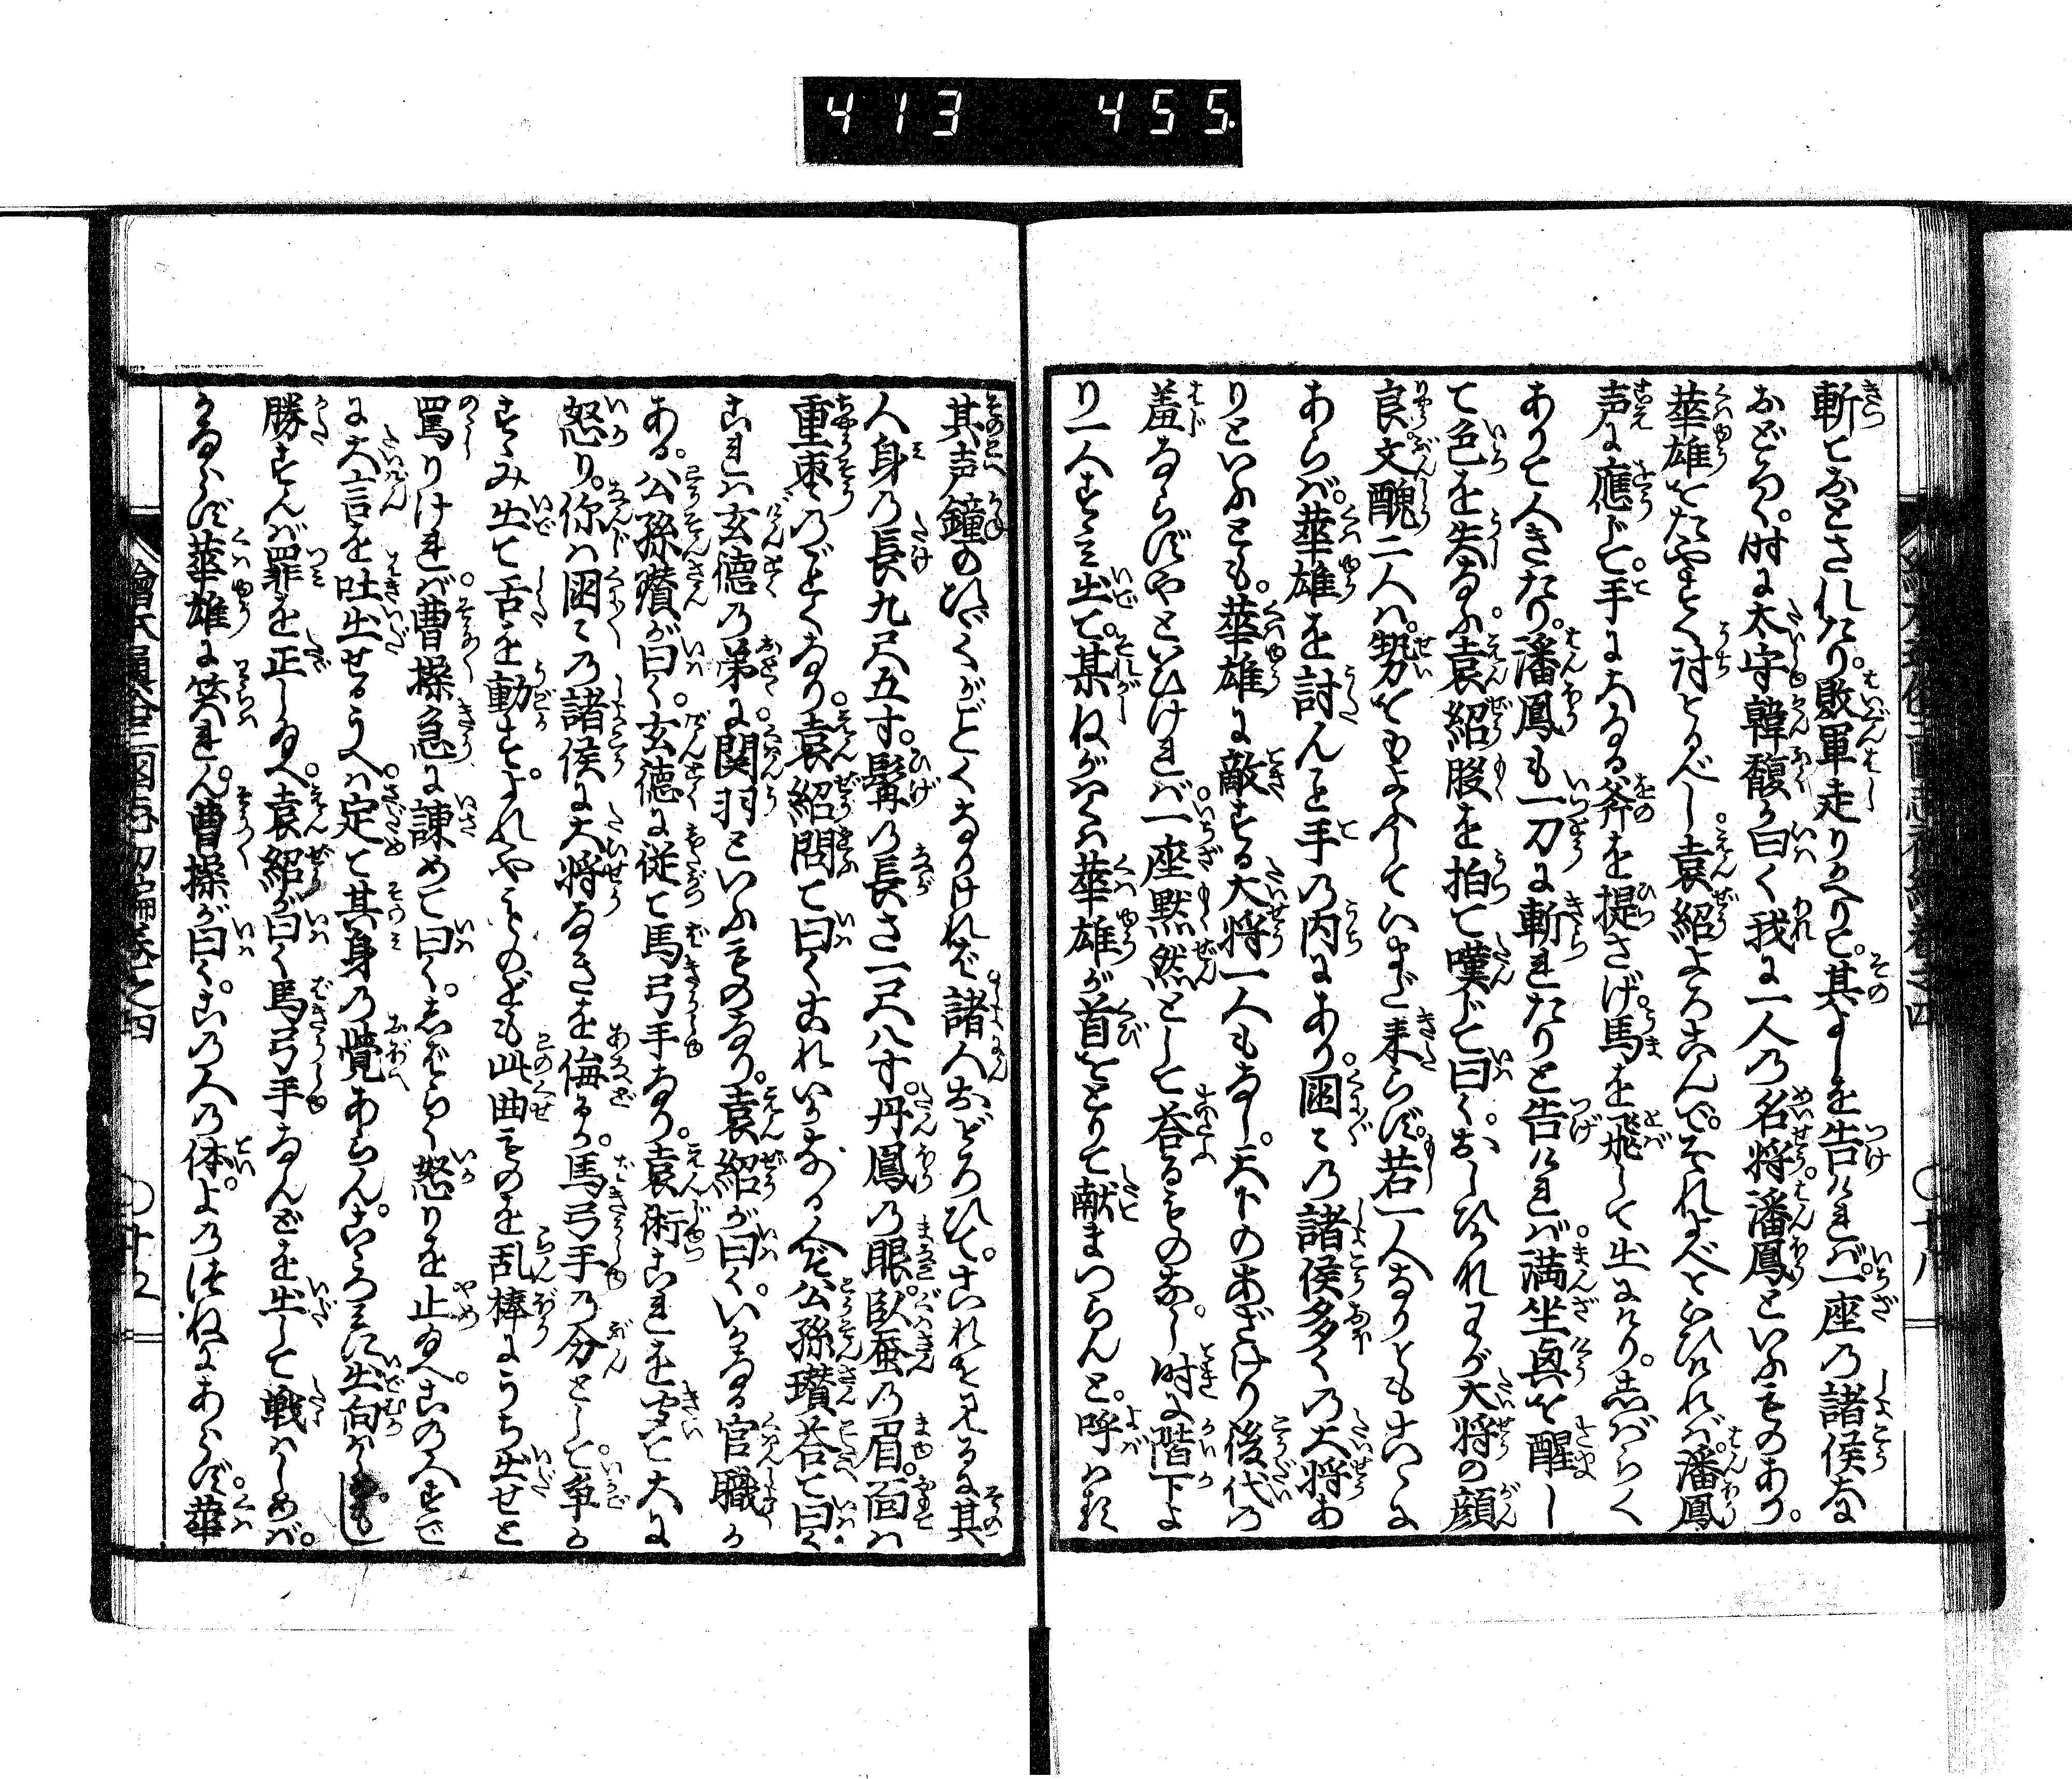 413 455.
斬ておとされたり。敗軍走りかへりて。其よしを告けれバ。一座乃諸侯大に
おどろく。时に太守韓馥が曰く我に一人乃名将潘鳳といふものあり。
華雄をたやすく討とるべし。袁紹よろこんで。それよべといひけれバ。潘鳳
声に應じて。手に大なる斧を提さげ。馬を飛して出にけり。志バらく
ありて人きたり。潘鳳も一刀に斬れたりと告けれバ。満坐興を醒し
て色を失なふ。袁紹股を拍て嘆じて曰く。おしひかれわが大将の顔
良。文醜二人ハ。勢をもよふしていまだ来らず。若一人なりともこゝに
あらバ。華雄を討んと手の内にあり。国々乃諸侯多く乃大将あ
りといふとも。華雄に敵する大将一人もなし。天下のあざけり後代乃
羞ならずやといひけれバ。一座黙然として荅るものなし。时に階下よ
り一人すゝミ出て。某ねがハくハ華雄が首をとりて献まつらんと。呼ハる
其声鐘のひゞくがごとくなりけれバ。諸人おどろひて。これを见るに其
人身乃長九尺五寸。髯乃長さ一尺八寸。丹鳳乃眼。臥蚕乃眉。面ハ
重棗乃ごとくなり。袁紹問て曰くこれいかなる人ぞ。公孫瓚荅て曰く
これハ玄德乃弟に関羽といふものなり。袁紹が曰く。いかなる官職か
ある。公孫瓚が曰く。玄德に従て馬弓手なり。袁術これを聞て大に
怒り。你ハ国々乃諸侯に大将なきを侮るか。馬弓手乃分として。争か
すゝみ出て舌を動すぞ。それやものども此曲ものを乱棒にうち出せと
罵りけれバ。曹操急に諌めて曰く。志ばらく怒りを止め玉へ。この人すで
に大言を吐出せるうへハ。定て其身乃覚あらん。こゝろミに出向ハしめ。もし
勝ずんバ罪を正し玉へ。袁紹が曰く馬弓手なんどを出して戦ハしめバ。
かならず華雄に笑れん。曹操が曰く。この人乃体。よ乃つねにあらず。華